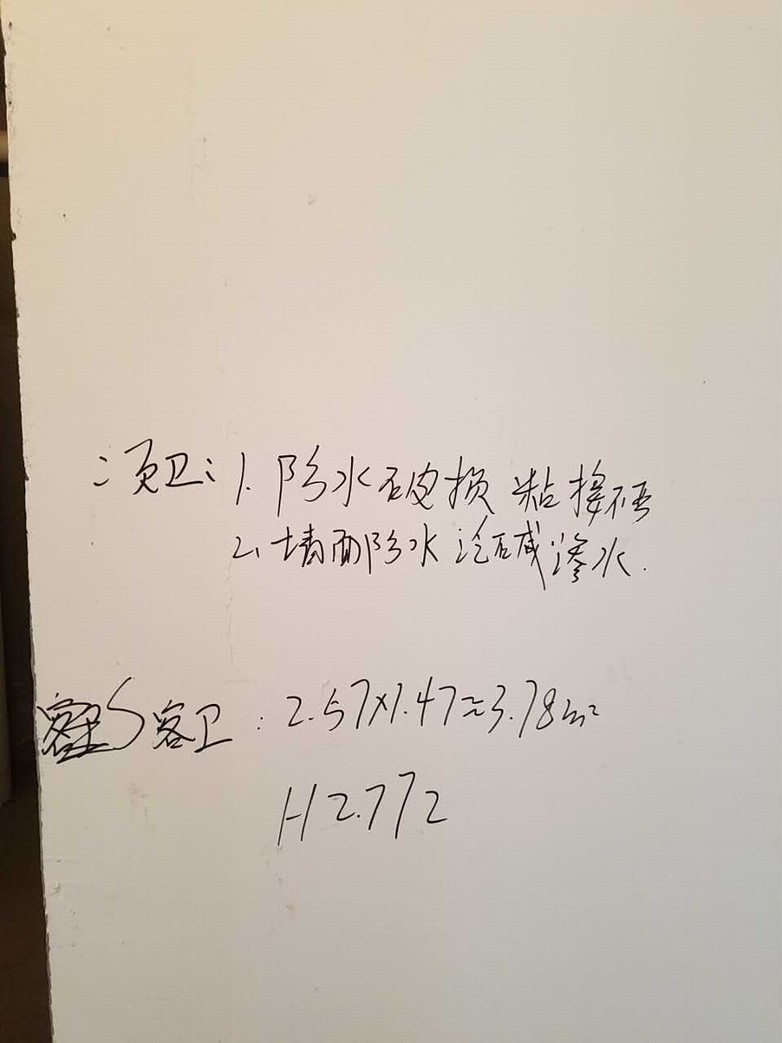 卫: 1. 防水破损 粘接不
2. 墙面防水泛碱渗水.
客卫: 2.57×1.47≈3.78m²
H2.772